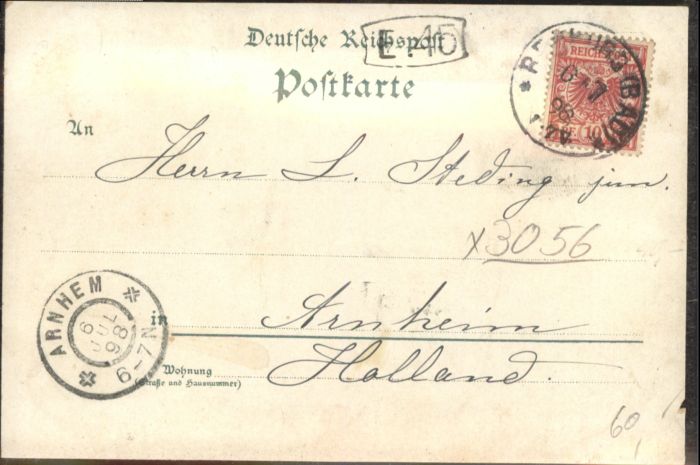 Deutsche Reichspost
E.45
Postkarte
REICHSPOST
10
98
An
Herrn L. Steding jun.
x3056
in Arnheim
Holland.
Wohnung
(Straße und Hausnummer)
ARNHEM
6-7N
60